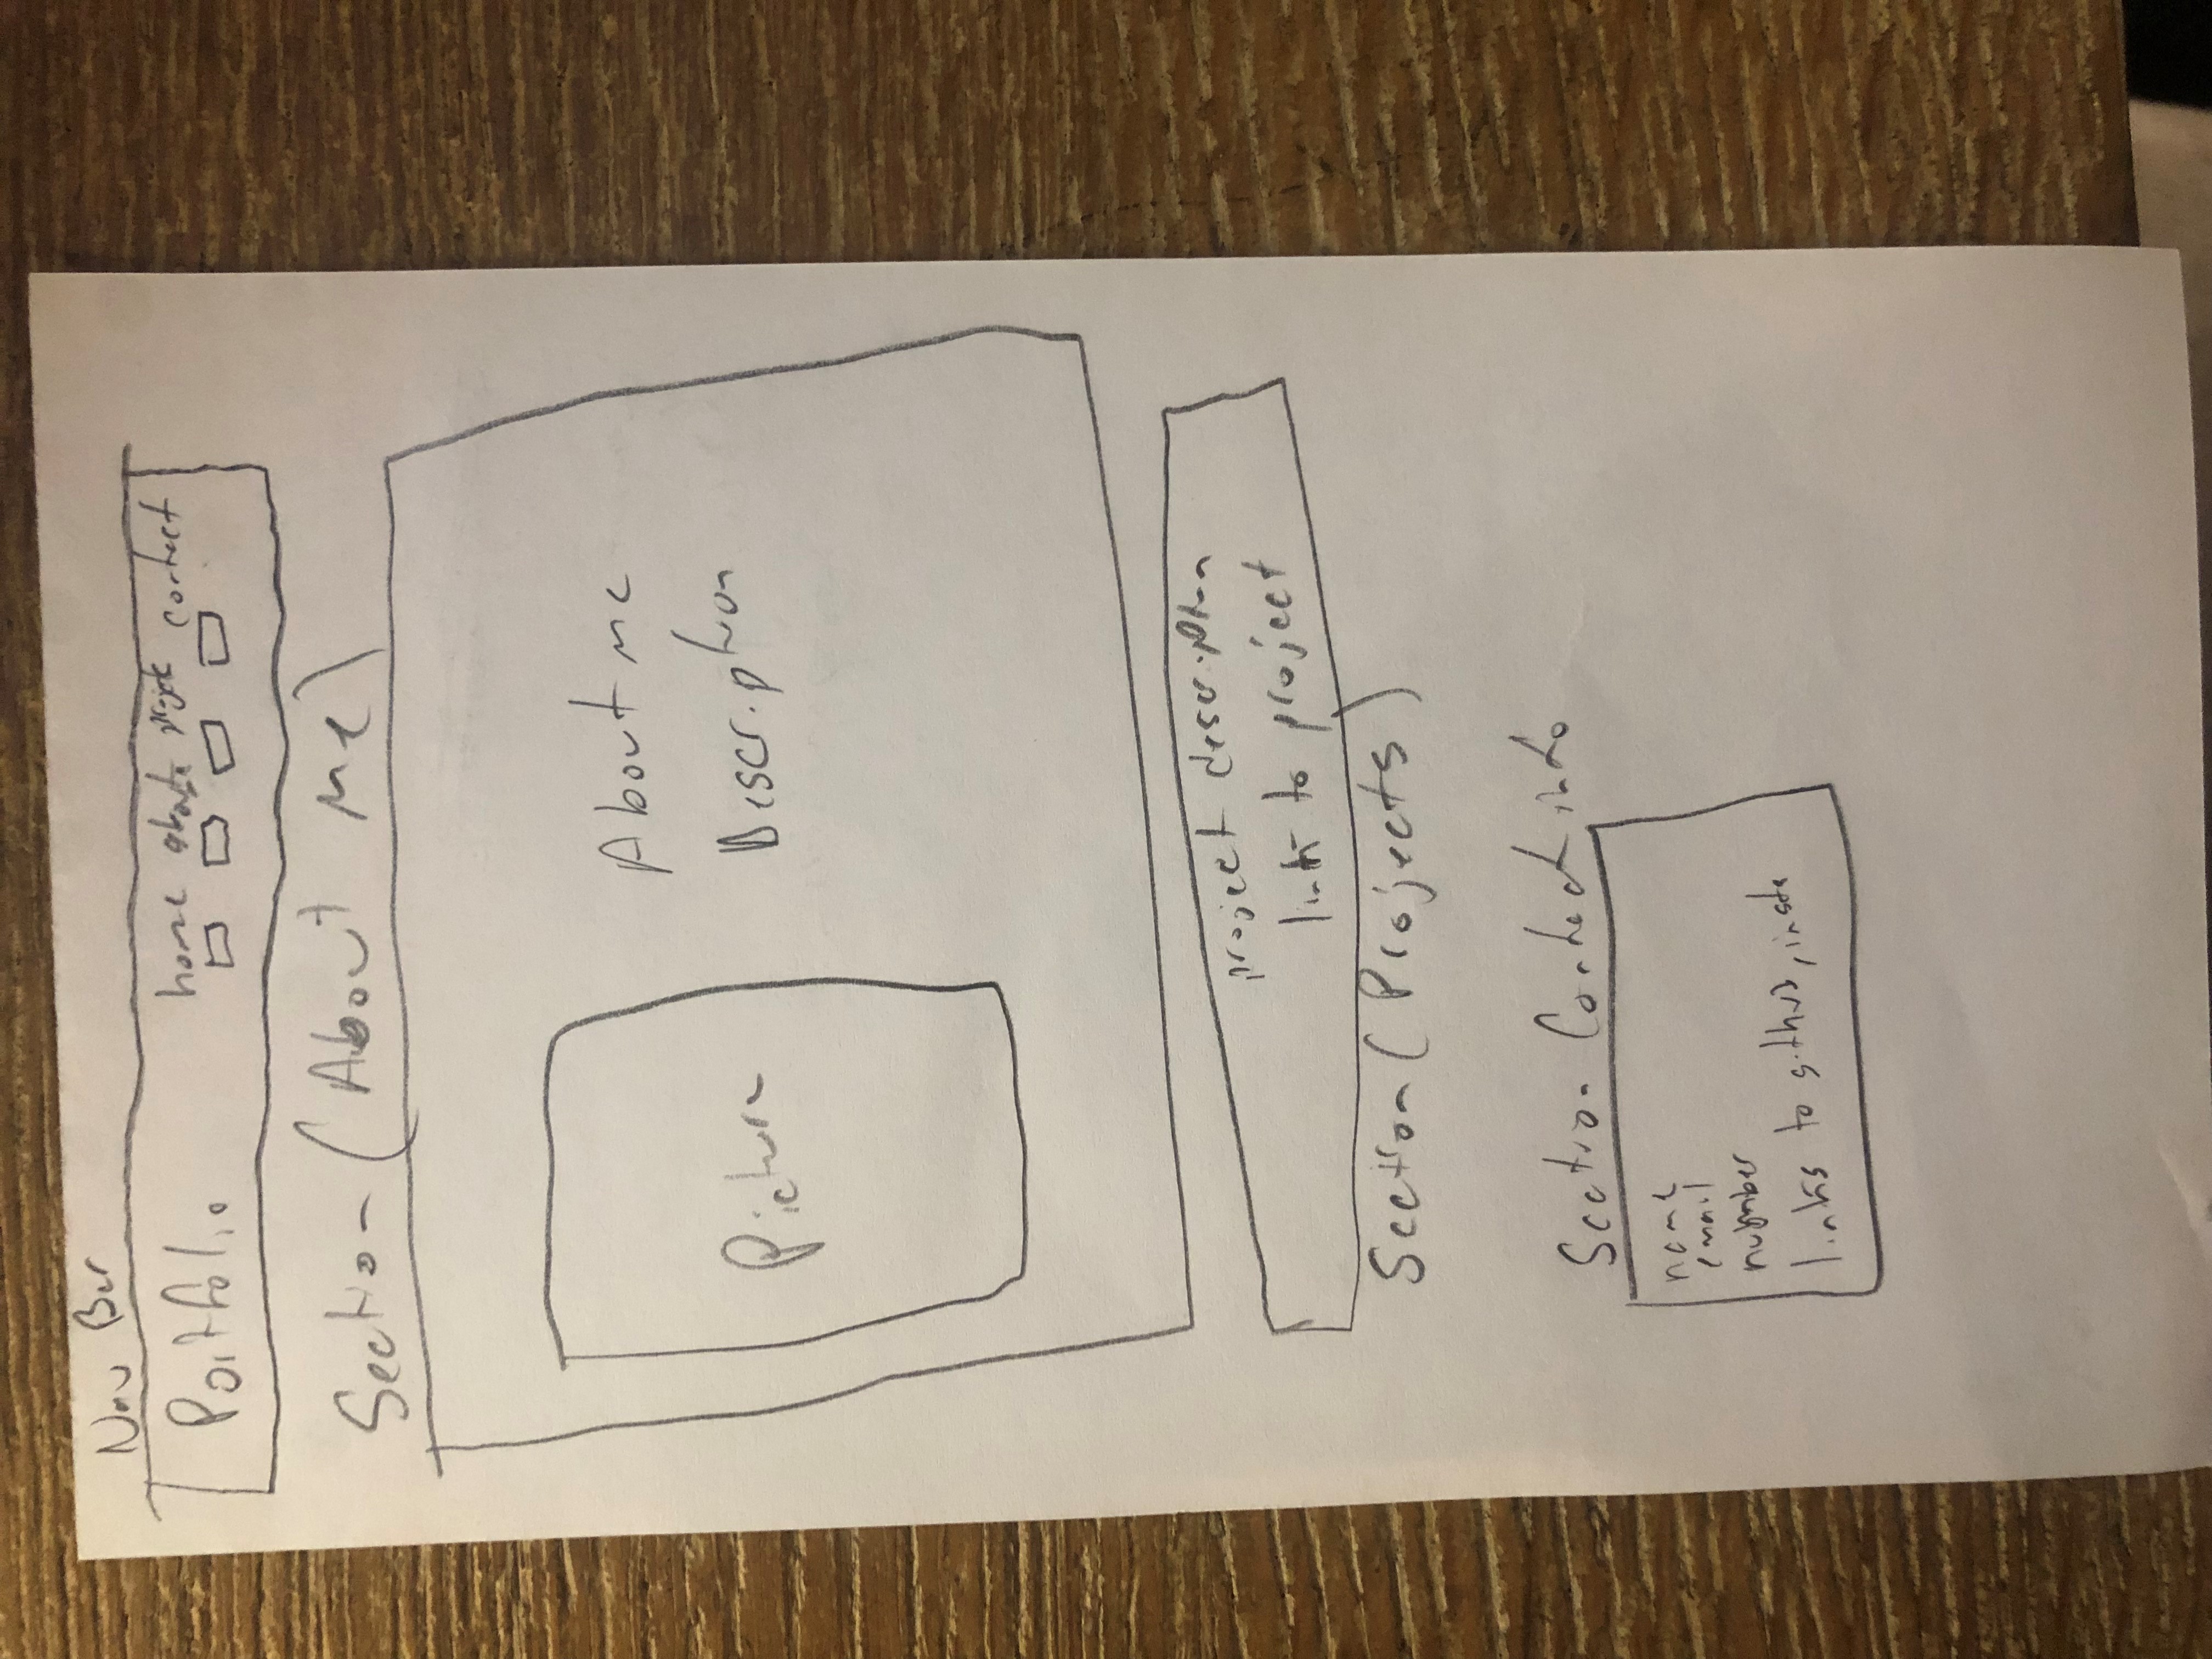 Nav Bar
Portfolio
home about project contact
Section (About Me)
Picture
About me
Description
project description
link to project
Section (Projects)
Section Contact info
name
email
number
links to github, insta